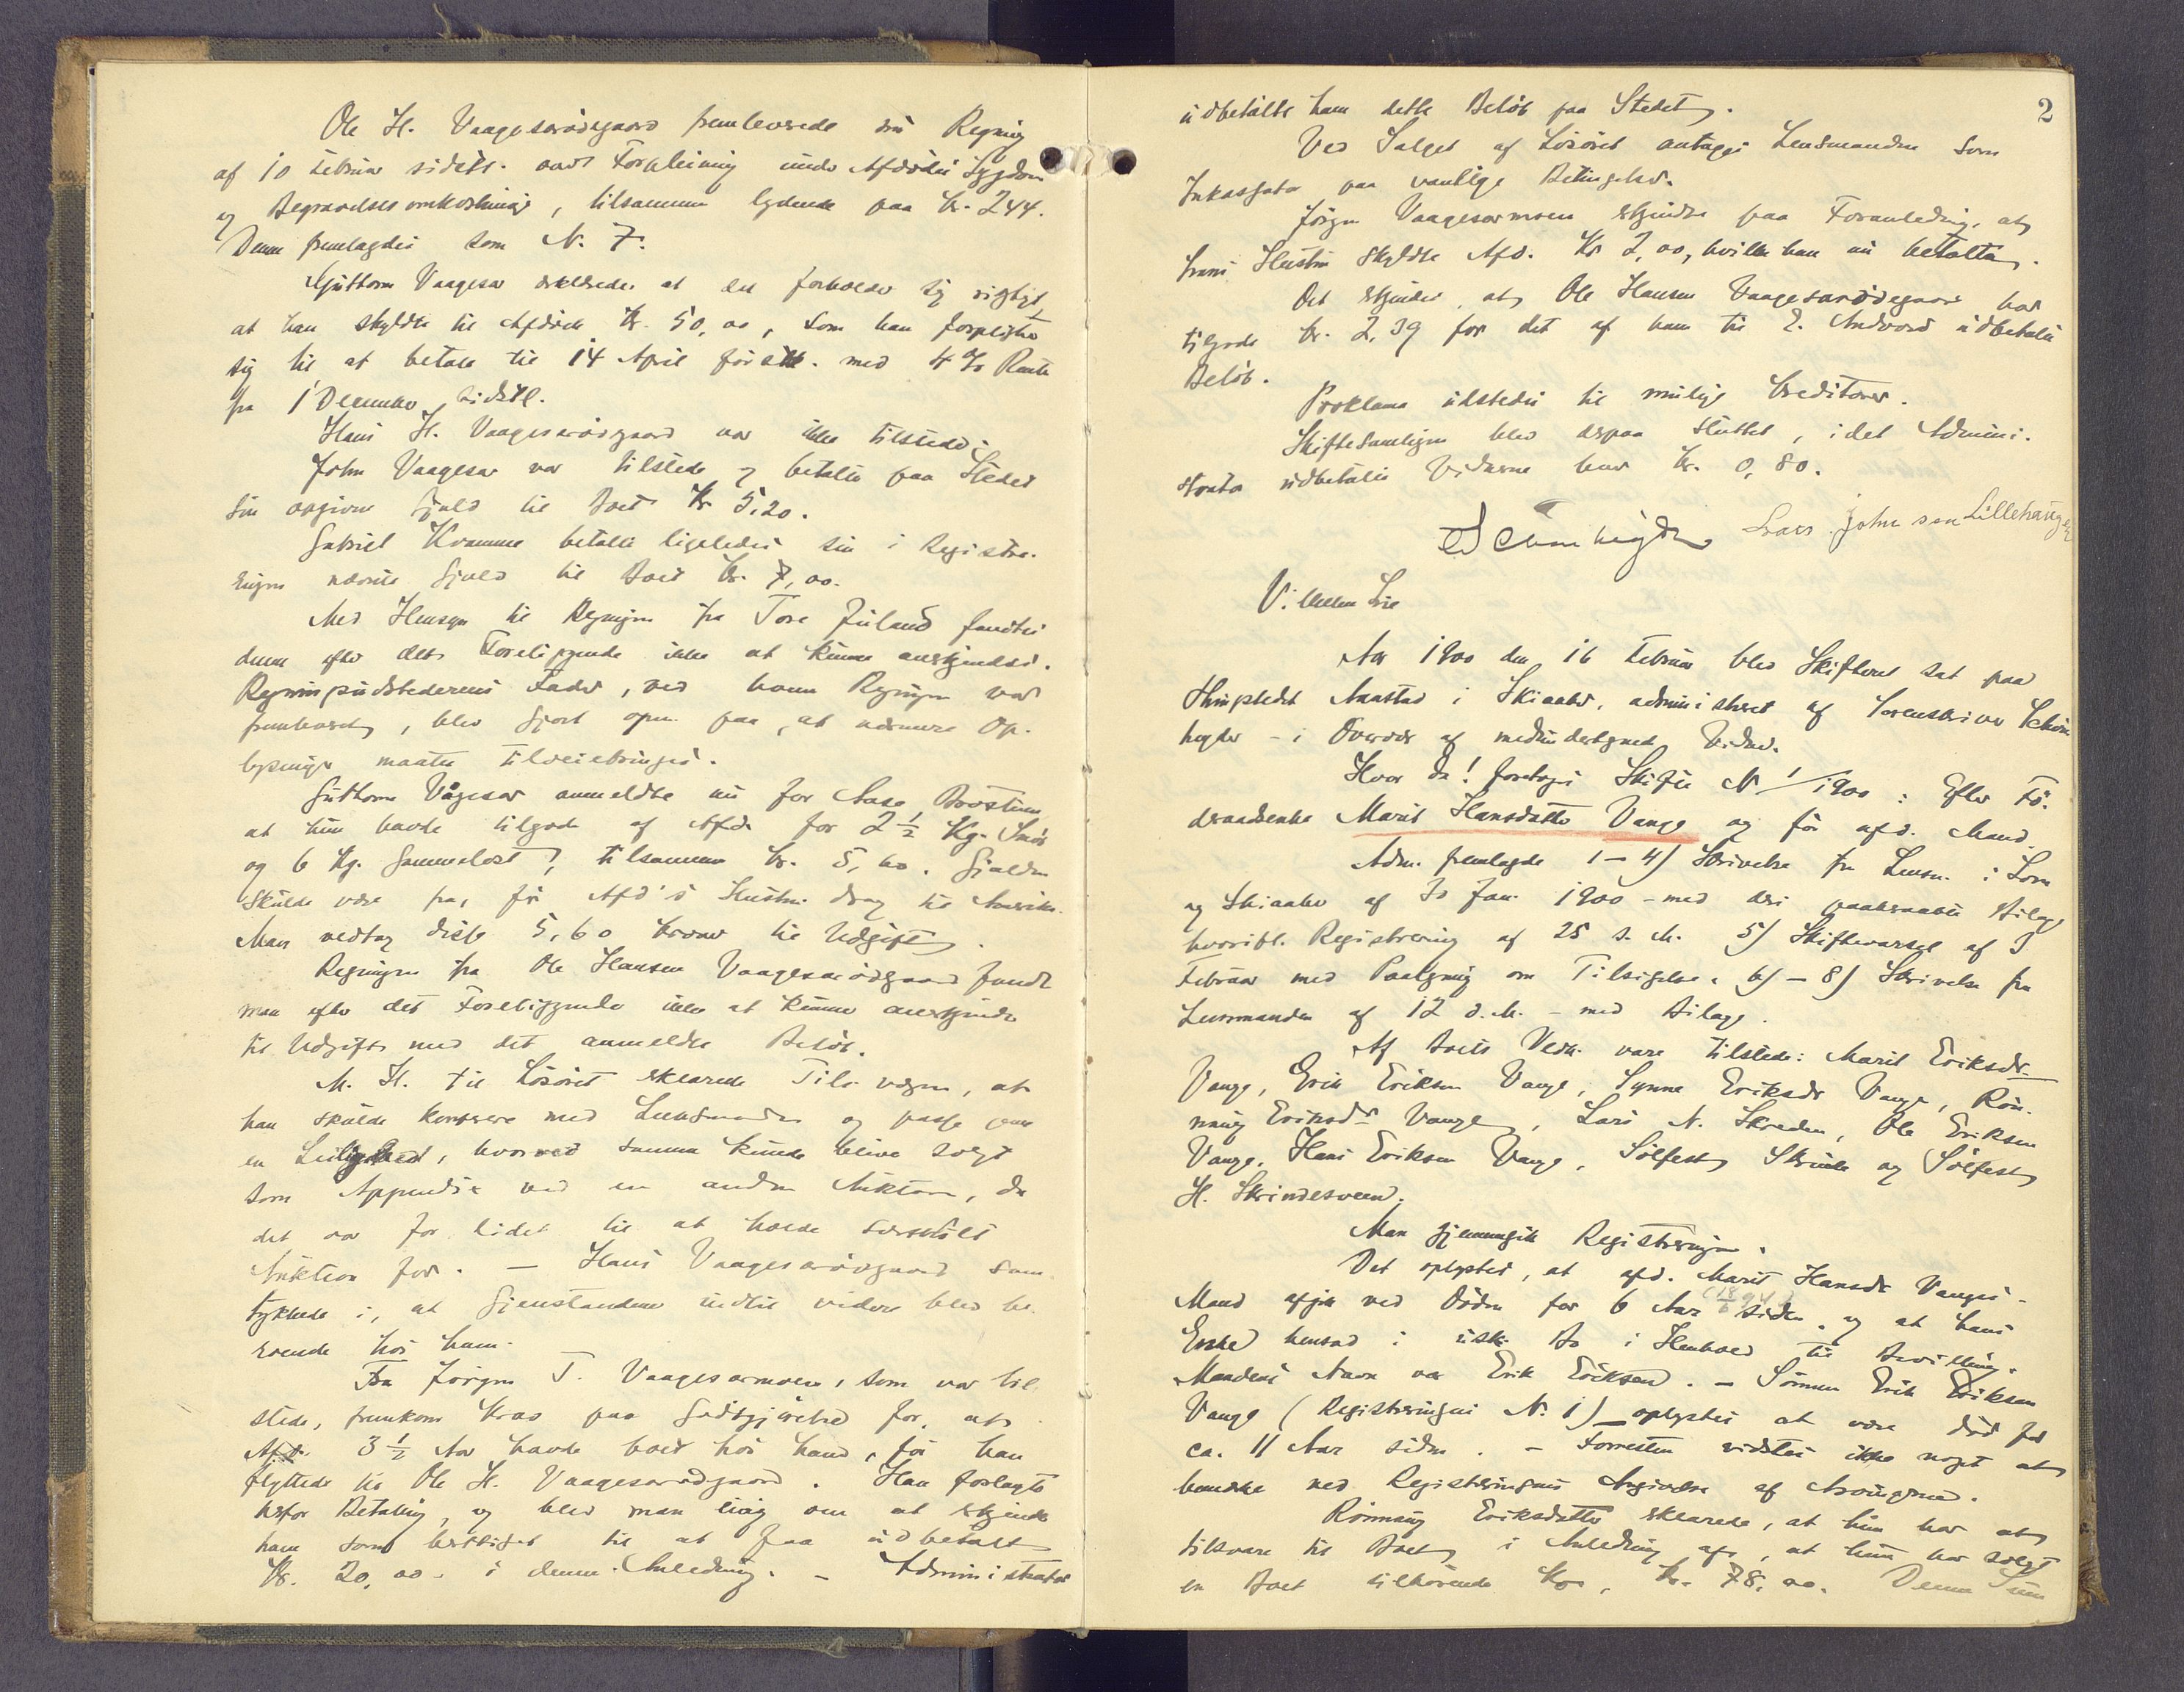 Ole H. Vaagesarødegaard fremleverede sin Regning
af 10 Februar sidstl. over Forpleining under Afdødes Sygdom
og Begravelsesomkostninger, tilsammen lydende paa Kr. 244.
Denne fremlagdes som N. 7.
Guttorm Vaagesar erklærede at det forholder sig rigtigt,
at han skyldte til Afdøde Kr. 50,00, som han forpligter
sig til at betale til 14 April førstk. med 4 % Rente
fra 1 December sidstl.
Hans H. Vaagesarødegaard var ikke tilstede.
John Vaagesar var tilstede og betalte paa Stedet
sin opgivne Gjæld til Boet Kr 5,20.
Gabriel Kvamme betalte ligeledes sin i Registre-
ringen nævnte Gjæld til Boet Kr. 7,00.
Med Hensyn til Regningen fra Tore Juland fandtes
denne efter det Foreliggende ikke at kunne anerkjendes.
Regningsudstederens Fader, ved hvem Regningen var
frembaaret, blev gjort opm. paa, at nærmere Op-
lysninger maatte tilveiebringes.
Guttorm Vågesar anmeldte nu for Aase Brostuen,
at hun havde tilgode af Afdøde for 2 ½ Kg. Smør
og 6 Kg. Gammelost, tilsammen Kr. 5,60. Gjælden
skulde være fra, før Afd's Hustru drog til Amerika.
Man vedtog disse 5,60 Kroner til Udgift.
Regningen fra Ole Hansen Vaagesarødegaard fandt
man efter det Foreliggende ikke at kunne anerkjende
til Udgift med det anmeldte Beløb.
M. H. til Løsøret erklærede Tils. værgen, at
han skulde konferere med Lensmanden og passe paa
en Leilighed, hvorved samme kunde blive solgt
som Appendix ved en anden Auktion, da
det var for lidet til at holde særskilt
Auktion for. — Hans Vaagesarødegaard sam-
tykkede i, at Gjenstandene indtil videre blev be-
roende hos ham.
Fra Jørgen T. Vaagesarmoen, som var til-
stede, fremkom Krav paa Godtgjørelse for, at
Afd. 3 ½ Aar havde boet hos ham, før han
flyttede til Ole H. Vaagesarødegaard. Han forlangte
herfor Betaling, og blev man enig om at erkjende
ham som berettiget til at faa udbetalt
Kr. 20,00 i denne Anledning. — Administrator
2
udbetalte ham dette Beløb paa Stedet.
Ved Salget af Løsøret antages Lensmanden som
Inkassator paa vanlige Betingelser.
Jørgen Vaagesarmoen erkjendte paa Foranledning, at
hans Hustru skyldte Afd. Kr 2,00, hvilke han nu betalte.
Det erkjendes, at Ole Hansen Vaagesarødegaard har
tilgode Kr. 2,39 for det af ham til E. Andvord udbetalte
Beløb.
Proklama udstedes til mulige Creditorer.
Skiftesamlingen blev derpaa sluttet, idet Admini-
strator udbetalte Vidnerne hver Kr. 0,80.
Lars Johnsen Lillehaugen
Aar 1900 den 16 Februar blev Skifteret sat paa
Thingstedet Aaastad i Skiaaker, administreret af Sorenskriver Schön-
heyder - i Overvær af medundertegnede Vidner.
Hvor da! foretoges Skifte N 1/1900: Efter Fø-
deraadsenke Marit Hansdatter Vange og før afd. Mand.
Adm. fremlagde 1 — 4) Skrivelse fra Lensm. i Lom
og Skiaaker af 30 Jan. 1900 - med deri paaberaabte Bilage
hvoribl. Registrering af 25 s. M. 5) Skiftevarsel af 3
Februar med Paategning om Tilsigelse. 6) — 8) Skrivelse fra
Lensmanden af 12 d. M. - med Bilage.
Af Boets Vedk. vare tilstede: Marit Eriksdr
Vange, Erik Eriksen Vange, Synne Eriksdr Vange, Røn-
naug Eriksdr Vange, Lars N. Skreden, Ole Eriksen
Vange, Hans Eriksen Vange, Sølfest Skrinde og Sølfest
H. Skrindesveen.
Man gjennemgik Registreringen.
Det oplystes, at afd. Marit Hansdr Vanges
Mand afgik ved Døden for 6 Aar siden, og at hans
Enke hensad i usk. Bo i Henhold til Bevilling.
Mandens Navn var Erik Eriksen. — Sønnen Erik Eriksen
Vange (Registreringens N. 1) — oplystes at være død for
ca. 11 Aar siden. — Forresten vidstes ikke noget at
bemærke ved Registreringens Angivelse af Arvingerne.
Rønnaug Eriksdatter erklærede, at hun har at
tilsvare til Boet, i Anledning af, at hun har solgt
en Boet tilhørende Ko, Kr. 78,00. Denne Sum